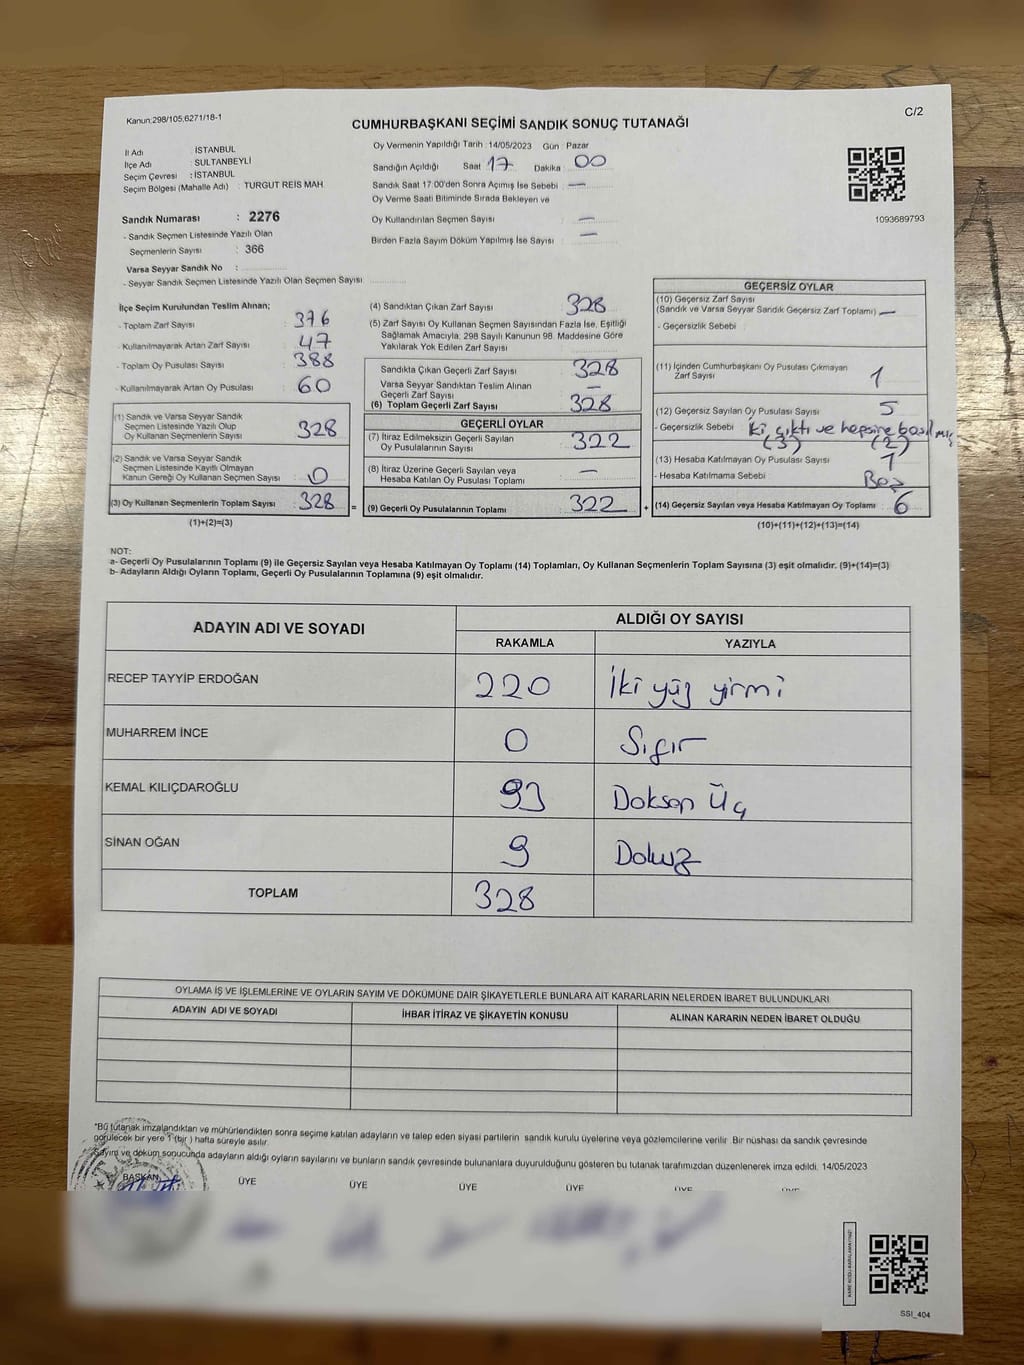 Kanun:298/105;6271/18-1
C/2
CUMHURBAŞKANI SEÇİMİ SANDIK SONUÇ TUTANAĞI
İl Adı : İSTANBUL
İlçe Adı : SULTANBEYLİ
Seçim Çevresi : İSTANBUL
Seçim Bölgesi (Mahalle Adı) : TURGUT REİS MAH.
Oy Vermenin Yapıldığı Tarih : 14/05/2023 Gün : Pazar
Sandığın Açıldığı Saat 17 Dakika 00
Sandık Saat 17:00'den Sonra Açımış İse Sebebi : —
Oy Verme Saati Bitiminde Sırada Bekleyen ve
Oy Kullandırılan Seçmen Sayısı : —
Birden Fazla Sayım Döküm Yapılmış İse Sayısı : —
1093689793
Sandık Numarası : 2276
- Sandık Seçmen Listesinde Yazılı Olan
Seçmenlerin Sayısı : 366
Varsa Seyyar Sandık No :
- Seyyar Sandık Seçmen Listesinde Yazılı Olan Seçmen Sayısı
İlçe Seçim Kurulundan Teslim Alınan;
- Toplam Zarf Sayısı : 376
- Kullanılmayarak Artan Zarf Sayısı : 47
- Toplam Oy Pusulası Sayısı : 388
- Kullanılmayarak Artan Oy Pusulası : 60
(1) Sandık ve Varsa Seyyar Sandık
Seçmen Listesinde Yazılı Olup
Oy Kullanan Seçmenlerin Sayısı : 328
(2) Sandık ve Varsa Seyyar Sandık
Seçmen Listesinde Kayıtlı Olmayan
Kanun Gereği Oy Kullanan Seçmen Sayısı : 0
(3) Oy Kullanan Seçmenlerin Toplam Sayısı : 328
(1)+(2)=(3)
=
(4) Sandıktan Çıkan Zarf Sayısı : 328
(5) Zarf Sayısı Oy Kullanan Seçmen Sayısından Fazla İse, Eşitliği
Sağlamak Amacıyla; 298 Sayılı Kanunun 98. Maddesine Göre
Yakılarak Yok Edilen Zarf Sayısı :
Sandıkta Çıkan Geçerli Zarf Sayısı : 328
Varsa Seyyar Sandıktan Teslim Alınan
Geçerli Zarf Sayısı : —
(6) Toplam Geçerli Zarf Sayısı : 328
GEÇERLİ OYLAR
(7) İtiraz Edilmeksizin Geçerli Sayılan
Oy Pusulasının Sayısı : 322
(8) İtiraz Üzerine Geçerli Sayılan veya
Hesaba Katılan Oy Pusulası Toplamı : —
(9) Geçerli Oy Pusulalarının Toplamı : 322
+
GEÇERSİZ OYLAR
(10) Geçersiz Zarf Sayısı
(Sandık ve Varsa Seyyar Sandık Geçersiz Zarf Toplamı) —
- Geçersizlik Sebebi :
(11) İçinden Cumhurbaşkanı Oy Pusulası Çıkmayan
Zarf Sayısı : 1
(12) Geçersiz Sayılan Oy Pusulası Sayısı : 5
- Geçersizlik Sebebi : İki çıktı ve hepsine basılmış
(3) (2)
(13) Hesaba Katılmayan Oy Pusulası Sayısı : 1
- Hesaba Katılmama Sebebi : Boş
(14) Geçersiz Sayılan veya Hesaba Katılmayan Oy Toplamı : 6
(10)+(11)+(12)+(13)=(14)
NOT:
a- Geçerli Oy Pusulalarının Toplamı (9) ile Geçersiz Sayılan veya Hesaba Katılmayan Oy Toplamı (14) Toplamları, Oy Kullanan Seçmenlerin Toplam Sayısına (3) eşit olmalıdır. (9)+(14)=(3)
b- Adayların Aldığı Oyların Toplamı, Geçerli Oy Pusulalarının Toplamına (9) eşit olmalıdır.
ADAYIN ADI VE SOYADI
ALDIĞI OY SAYISI
RAKAMLA YAZIYLA
RECEP TAYYİP ERDOĞAN 220 İki yüz yirmi
MUHARREM İNCE 0 Sıfır
KEMAL KILIÇDAROĞLU 93 Doksan Üç
SİNAN OĞAN 9 Dokuz
TOPLAM 328
OYLAMA İŞ VE İŞLEMLERİNE VE OYLARIN SAYIM VE DÖKÜMÜNE DAİR ŞİKAYETLERLE BUNLARA AİT KARARLARIN NELERDEN İBARET BULUNDUKLARI
ADAYIN ADI VE SOYADI İHBAR İTİRAZ VE ŞİKAYETİN KONUSU ALINAN KARARIN NEDEN İBARET OLDUĞU
*Bu tutanak imzalandıktan ve mühürlendikten sonra seçime katılan adayların ve talep eden siyasi partilerin sandık kurulu üyelerine veya gözlemcilerine verilir. Bir nüshası da sandık çevresinde
görülecek bir yere 1 (bir ) hafta süreyle asılır.
Sayım ve döküm sonucunda adayların aldığı oyların sayılarını ve bunların sandık çevresinde bulunanlara duyurulduğunu gösteren bu tutanak tarafımızdan düzenlenerek imza edildi. 14/05/2023
BAŞKAN ÜYE ÜYE ÜYE ÜYE ÜYE ÜYE
SSI_404